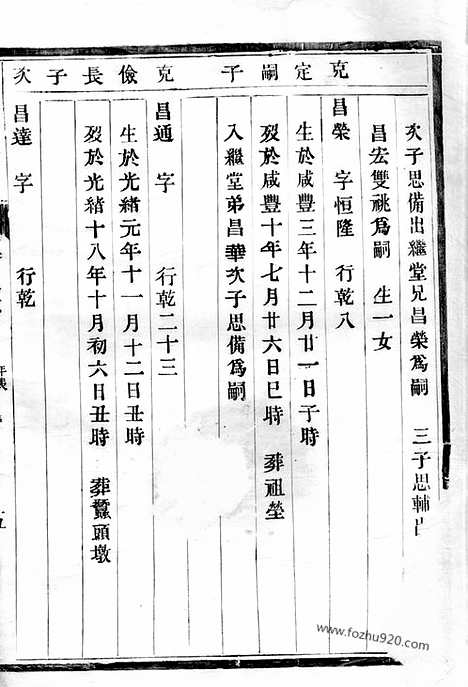 克定嗣子
克儉長子
次
次子思備出繼堂兄昌榮爲嗣 三子思輔出
昌宏雙祧爲嗣 生一女
昌榮 字恒隆 行乾八
生於咸豐三年十二月廿一日子時
歿於咸豐十年七月廿六日巳時 葬祖塋
入繼堂弟昌華次子思備爲嗣
昌通 字 行乾二十三
生於光緒元年十一月十二日丑時
歿於光緒十八年十月初六日丑時 葬鱉頭墩
昌達 字 行乾
www.fozhu920.com